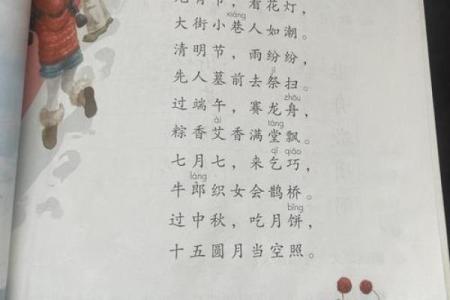 元宵节，看花灯，
xiàng
大街小巷人如潮。
清明节，雨纷纷，
jì
先人墓前去祭扫。
zhōu
过端午，赛龙舟，
ài táng
粽香艾香满堂飘。
qǐ qiǎo
七月七，来乞巧，
láng
牛郎织女会鹊桥。
bǐng
过中秋，吃月饼，
十五圆月当空照。